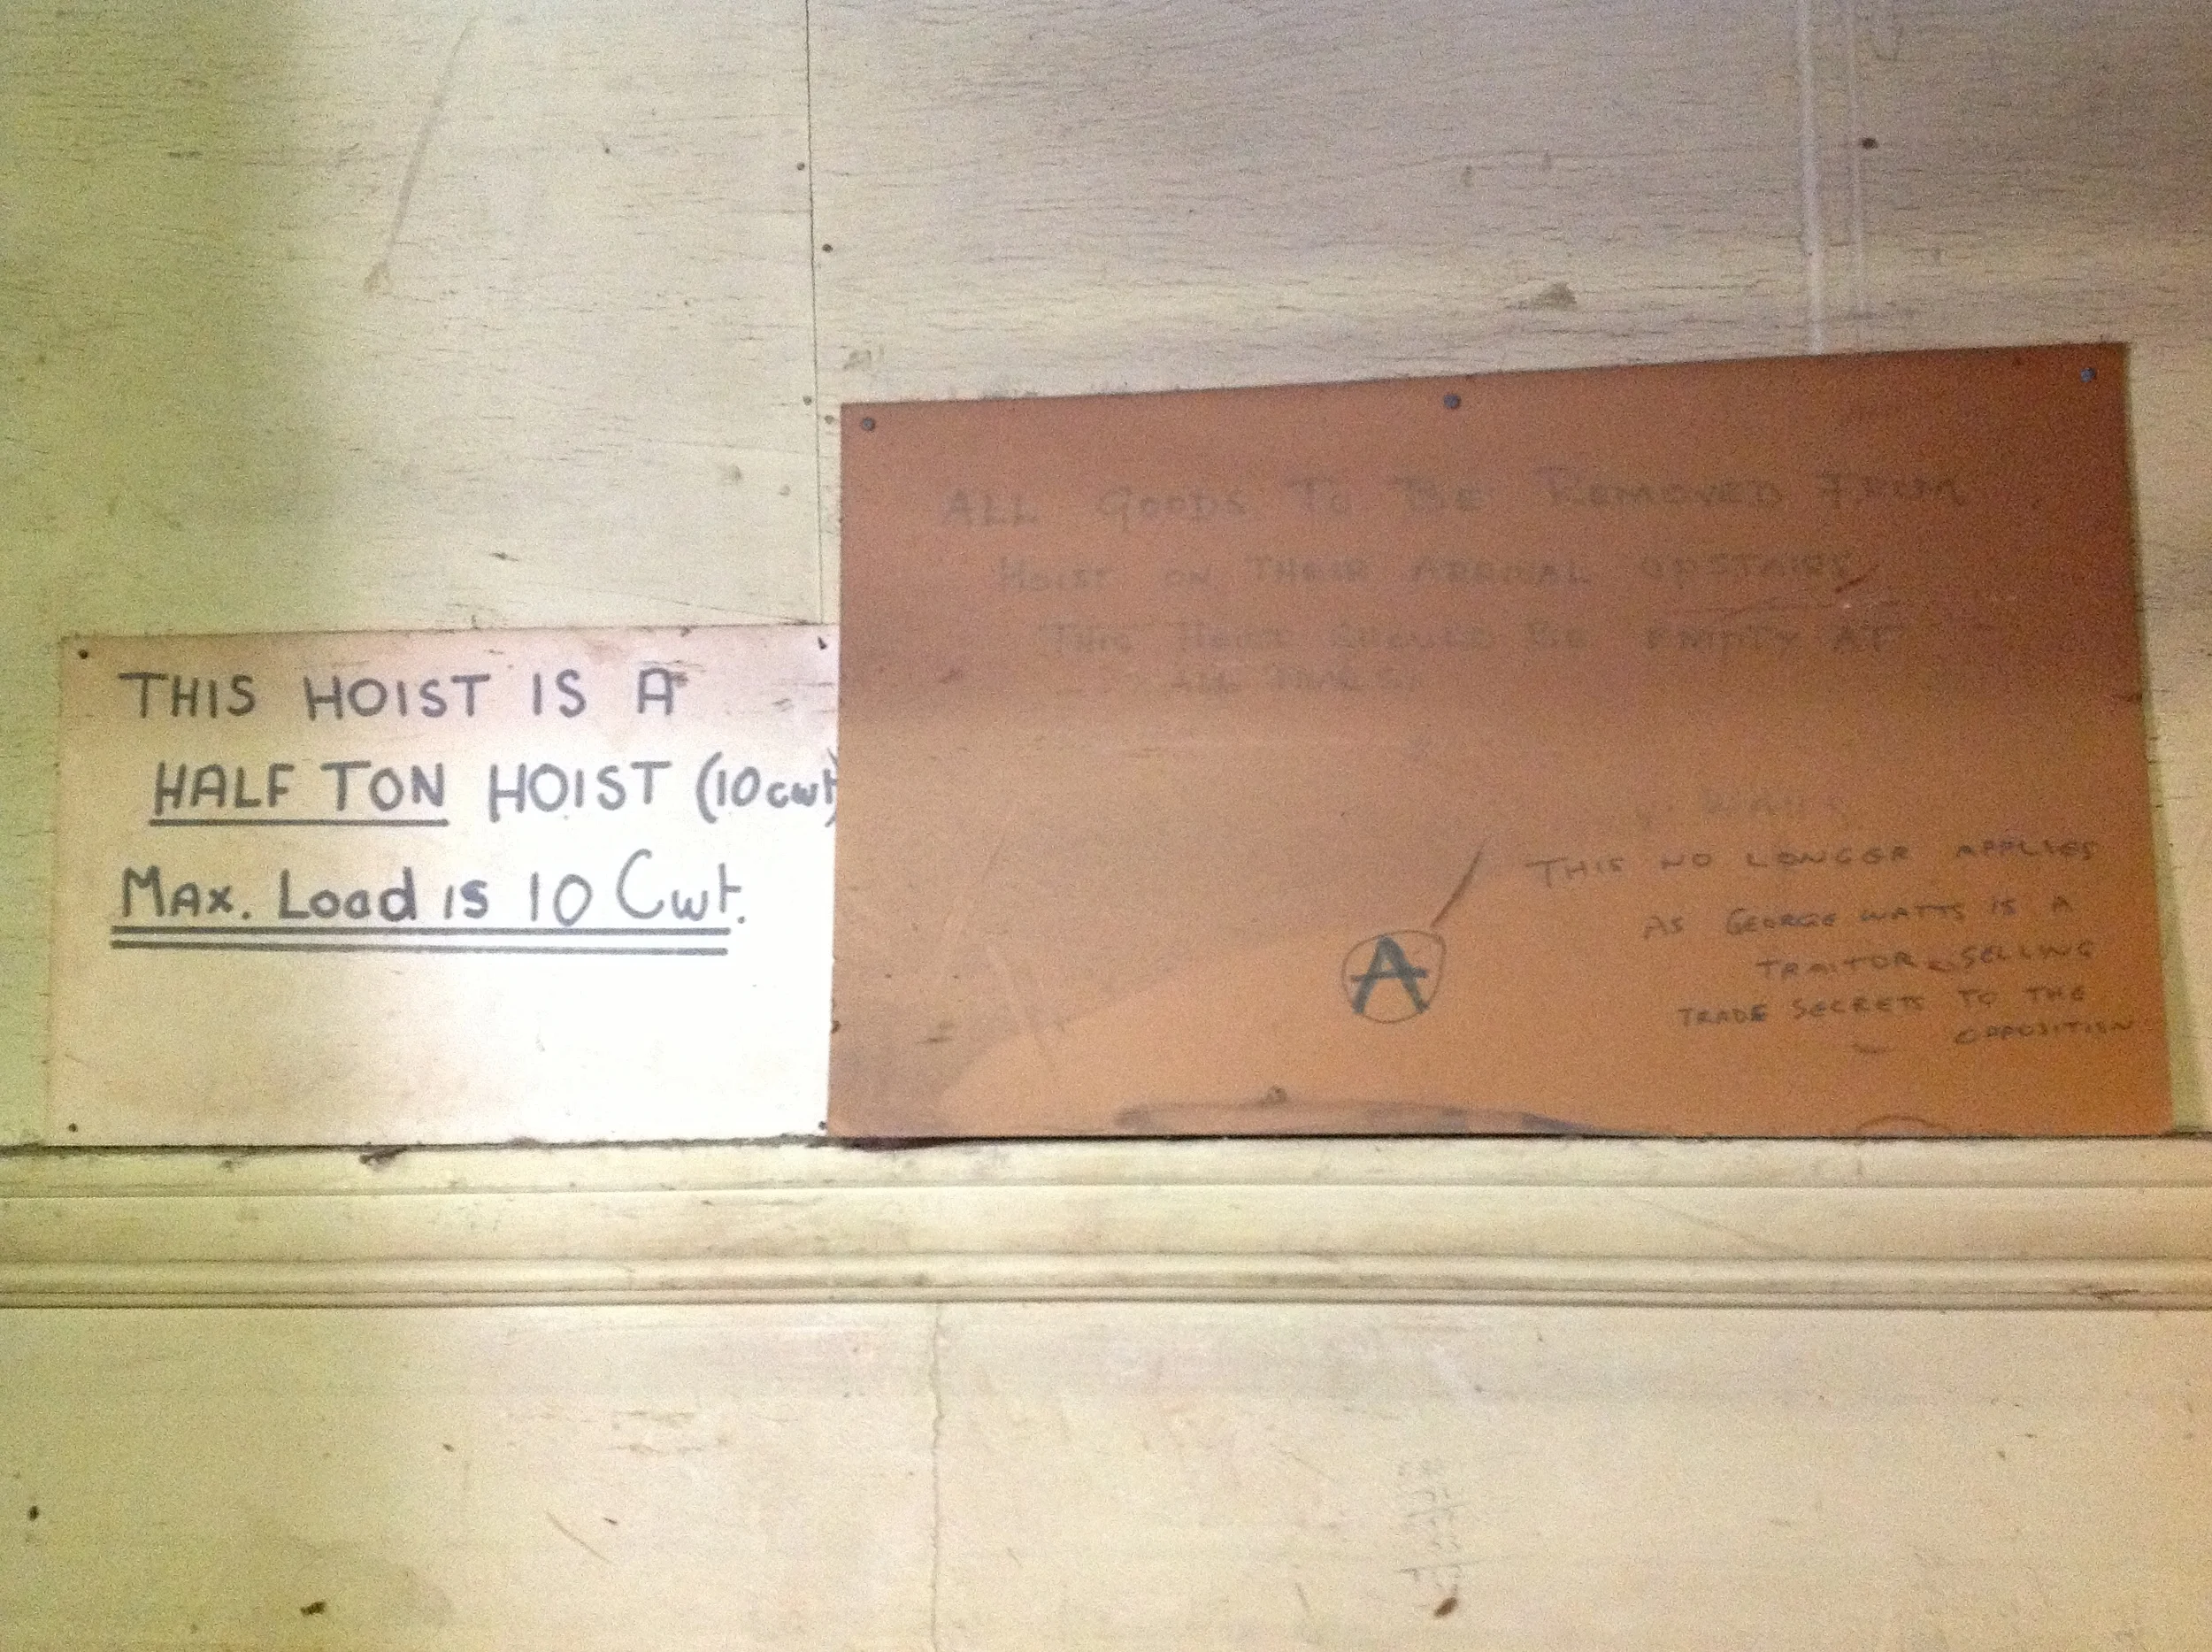 THIS HOIST IS A
HALF TON HOIST (10cwt)
Max. Load is 10 Cwt.
ALL GOODS TO BE REMOVED FROM
HOIST ON THEIR ARRIVAL UPSTAIRS
THIS HOIST SHOULD BE EMPTY AT
ALL TIMES
A
THIS NO LONGER APPLIES
AS GEORGE WATTS IS A
TRAITOR SELLING
TRADE SECRETS TO THE
OPPOSITION